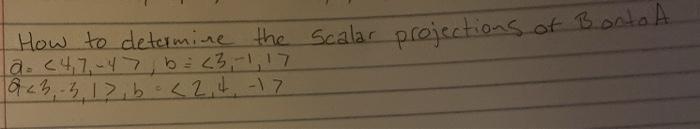 How to determine the Scalar projections of B onto A
a = <4,7,-4>, b = <3,-1,1>
a<3,-3,1>, b = <2,4,-1>